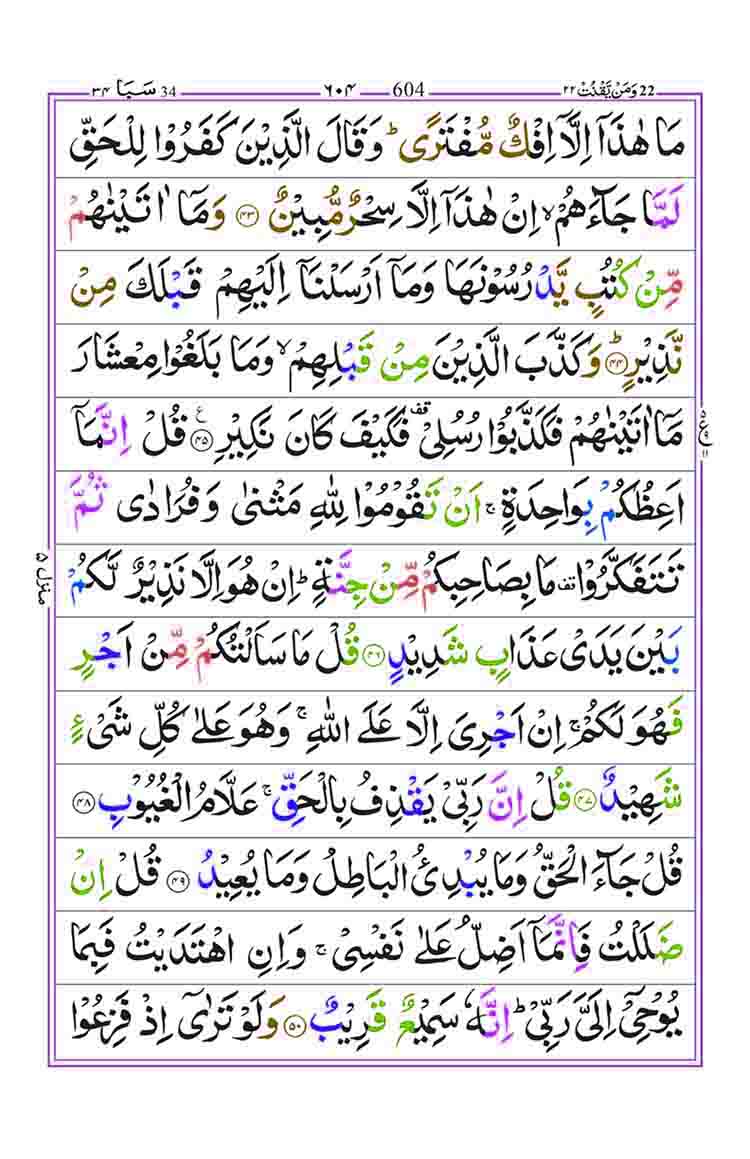 22 وَمَنْ يَّقْنُتْ ٢٢ 604 ۶۰۴ 34 سَبَا ۳۴
مَا هٰذَاۤ اِلَّاۤ اِفْكٌ مُّفْتَرًى ؕ وَقَالَ الَّذِيْنَ كَفَرُوْا لِلْحَقِّ
لَمَّا جَآءَهُمْ ۙ اِنْ هٰذَاۤ اِلَّا سِحْرٌ مُّبِيْنٌ ﴿۴۳﴾ وَمَاۤ اٰتَيْنٰهُمْ
مِّنْ كُتُبٍ يَّدْرُسُوْنَهَا وَمَاۤ اَرْسَلْنَاۤ اِلَيْهِمْ قَبْلَكَ مِنْ
نَّذِيْرٍ ؕ﴿۴۴﴾ وَكَذَّبَ الَّذِيْنَ مِنْ قَبْلِهِمْ ۙ وَمَا بَلَغُوْا مِعْشَارَ
مَاۤ اٰتَيْنٰهُمْ فَكَذَّبُوْا رُسُلِيْ ۫ فَكَيْفَ كَانَ نَكِيْرِ ﴿۴۵﴾ ع قُلْ اِنَّمَاۤ
اَعِظُكُمْ بِوَاحِدَةٍ ۚ اَنْ تَقُوْمُوْا لِلّٰهِ مَثْنٰى وَفُرَادٰى ثُمَّ
تَتَفَكَّرُوْا ۫ مَا بِصَاحِبِكُمْ مِّنْ جِنَّةٍ ؕ اِنْ هُوَ اِلَّا نَذِيْرٌ لَّكُمْ
بَيْنَ يَدَيْ عَذَابٍ شَدِيْدٍ ﴿۴۶﴾ قُلْ مَا سَاَلْتُكُمْ مِّنْ اَجْرٍ
فَهُوَ لَكُمْ ؕ اِنْ اَجْرِيَ اِلَّا عَلَى اللّٰهِ ۚ وَهُوَ عَلٰى كُلِّ شَيْءٍ
شَهِيْدٌ ﴿۴۷﴾ قُلْ اِنَّ رَبِّيْ يَقْذِفُ بِالْحَقِّ ۚ عَلَّامُ الْغُيُوْبِ ﴿۴۸﴾
قُلْ جَآءَ الْحَقُّ وَمَا يُبْدِئُ الْبَاطِلُ وَمَا يُعِيْدُ ﴿۴۹﴾ قُلْ اِنْ
ضَلَلْتُ فَاِنَّمَاۤ اَضِلُّ عَلٰى نَفْسِيْ ۚ وَاِنِ اهْتَدَيْتُ فَبِمَا
يُوْحِيْۤ اِلَيَّ رَبِّيْ ؕ اِنَّهٗ سَمِيْعٌ قَرِيْبٌ ﴿۵۰﴾ وَلَوْ تَرٰۤى اِذْ فَزِعُوْا
منزل ۵